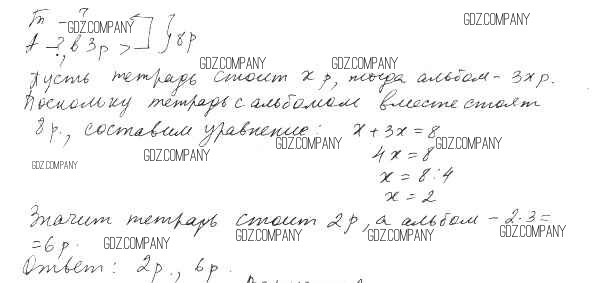 Т - ?
А - ?, в 3р > } 8р
Пусть тетрадь стоит x р, тогда альбом - 3x р.
Поскольку тетрадь с альбомом вместе стоят
8 р., составим уравнение: x + 3x = 8
4x = 8
x = 8 : 4
x = 2
Значит тетрадь стоит 2 р, а альбом - 2·3 =
= 6 р.
Ответ: 2 р., 6 р.
GDZ.COMPANY
GDZ.COMPANY
GDZ.COMPANY
GDZ.COMPANY
GDZ.COMPANY
GDZ.COMPANY
GDZ.COMPANY
GDZ.COMPANY
GDZ.COMPANY
GDZ.COMPANY
GDZ.COMPANY
GDZ.COMPANY
GDZ.COMPANY